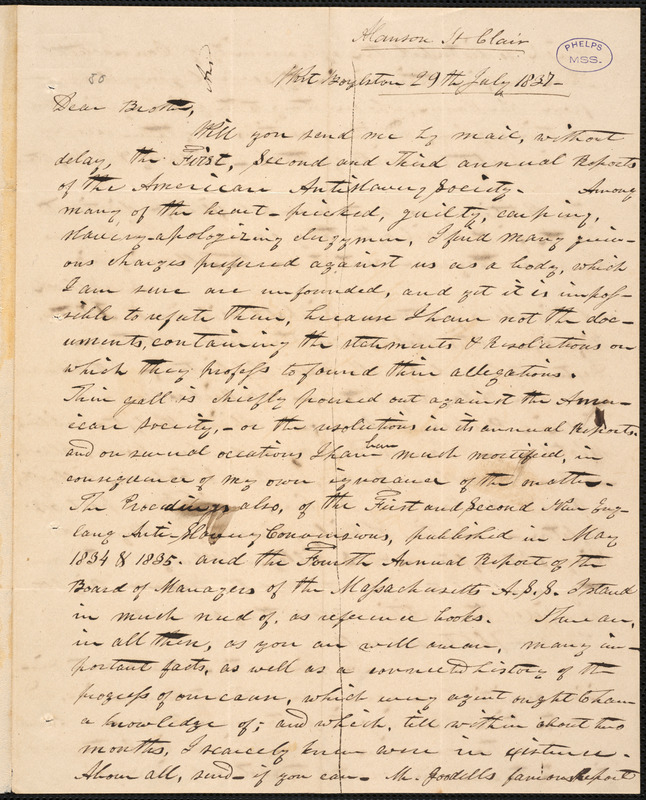 Alanson St Clair
PHELPS
MSS.
West Boylston 29th July 1837-
Dear Brother,
Will you send me by mail, without
delay, the First, Second and Third annual Reports
of the American Antislavery Society. Among
many of the heart-pricked, guilty, carping,
slavery-apologizing clergymen, I find many griev-
ous charges preferred against us as a body, which
I am sure are unfounded, and yet it is impos-
sible to refute them, because I have not the doc-
uments, containing the statements & Resolutions on
which they profess to found their allegations.
Their gall is chiefly poured out against the Amer-
ican Society,- or the resolutions in its annual Reports.
and on several occations I have been much mortified, in
consequence of my own ignorance of the matter.
The Proceedings also, of the First and Second New Eng-
land Anti-Slavery Conventions, published in May
1834 & 1835. and the Fourth Annual Report of the
Board of Managers of the Massachusetts A.S.S. I stand
in much need of, as reference books. There are,
in all these, as you are well aware, many im-
portant facts, as well as a connected history of the
progress of our cause, which every agent ought to have
a knowledge of; and which, till within about two
months, I scarcely knew were in existence.
Above all, send- if you can- Mr. Goodell's famous Report